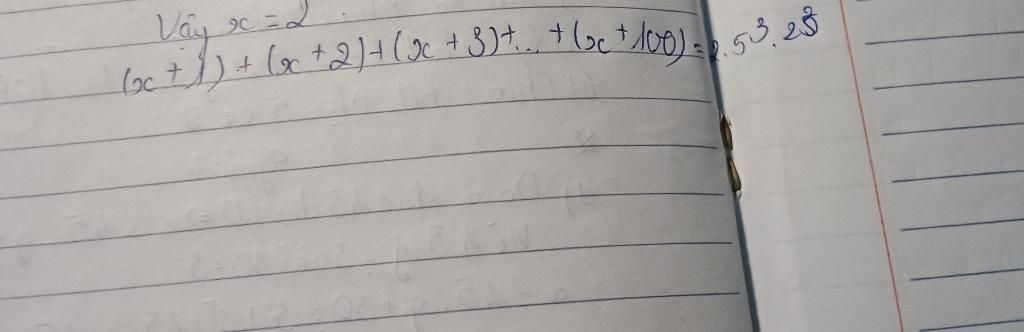 Vậy x = 2
(x + 1) + (x + 2) + (x + 3) + ... + (x + 100) = 2.5³.2⁸